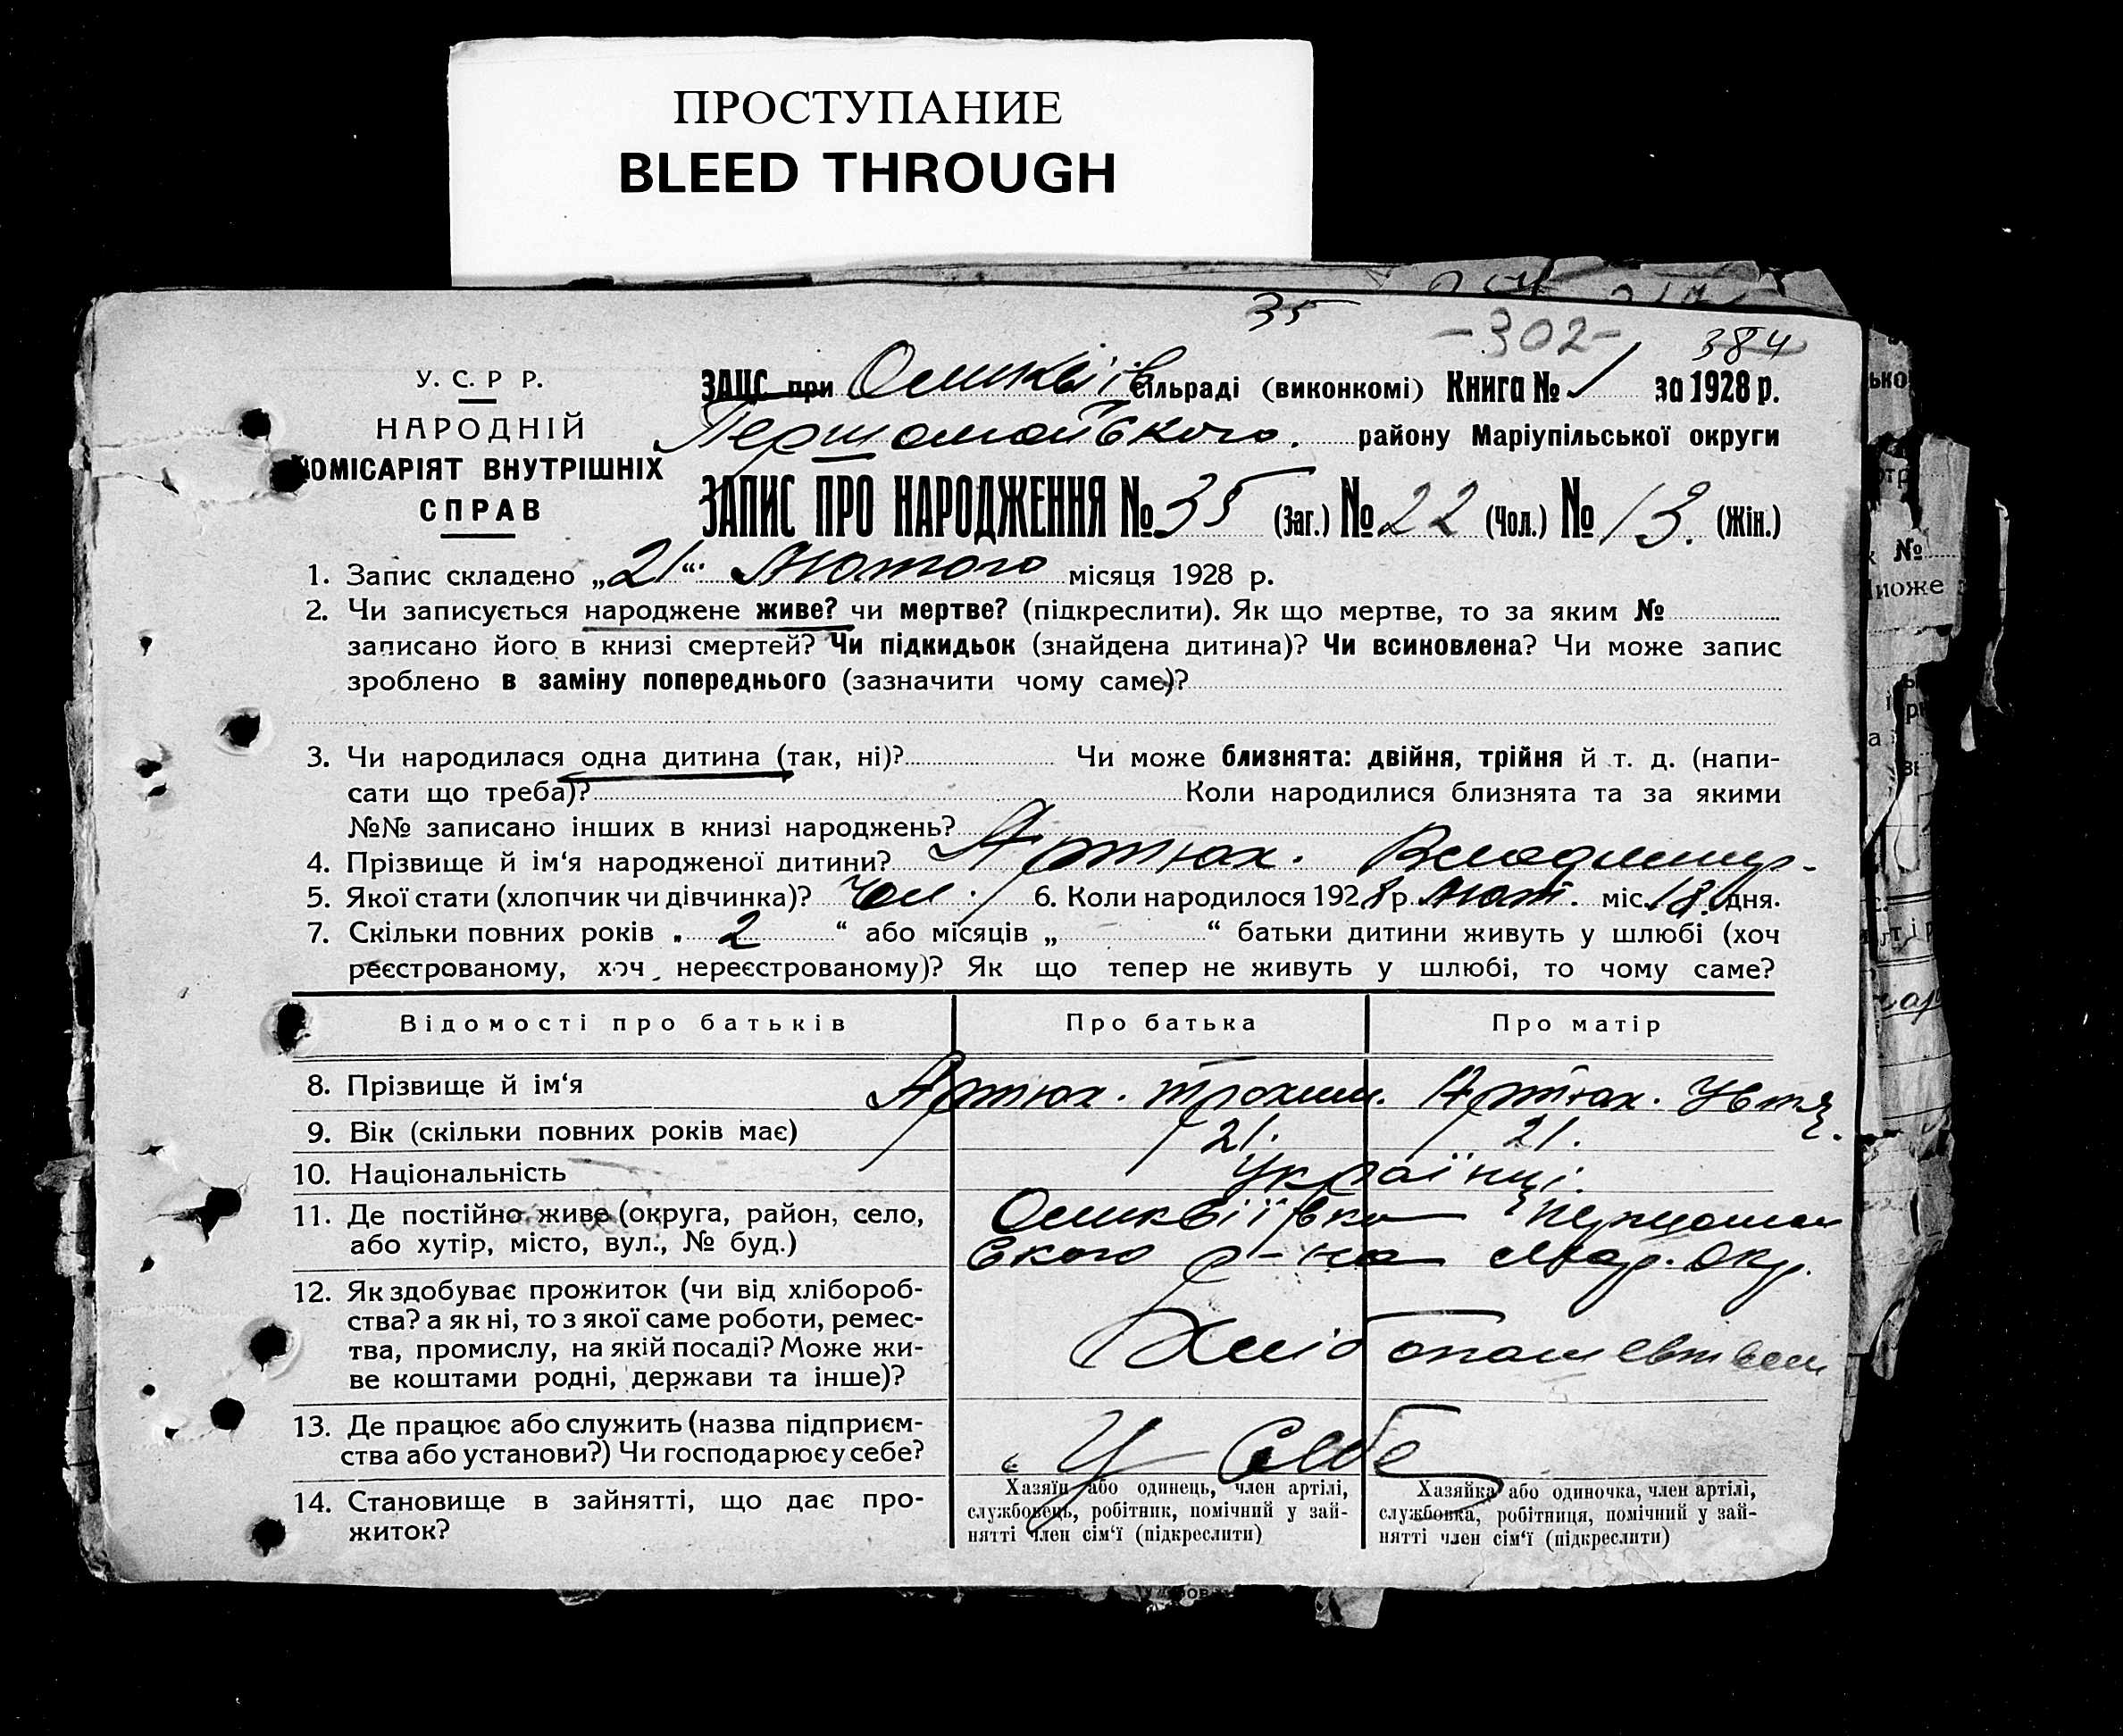 ПРОСТУПАНИЕ
BLEED THROUGH
35
-302-
384
У. С. Р Р.
НАРОДНІЙ
КОМІСАРІЯТ ВНУТРІШНІХ
СПРАВ
ЗАЦС при сільраді (виконкомі) Книга № 1 за 1928 р.
Першомайського. району Маріупільської округи
ЗАПИС ПРО НАРОДЖЕННЯ № 35 (Заг.) № 22 (Чол.) № 13. (Жін.)
1. Запис складено „21“ Лютого місяця 1928 р.
2. Чи записується народжене живе? чи мертве? (підкреслити). Як що мертве, то за яким №
записано його в книзі смертей? Чи підкидьок (знайдена дитина)? Чи всиновлена? Чи може запис
зроблено в заміну попереднього (зазначити чому саме)?
3. Чи народилася одна дитина (так, ні)? Чи може близнята: двійня, трійня й т. д. (напи-
сати що треба)? Коли народилися близнята та за якими
№№ записано інших в книзі народжень?
4. Прізвище й ім‘я народженої дитини? Артюх. Володимир.
5. Якої стати (хлопчик чи дівчинка)? Чол. 6. Коли народилося 1928 р. Лют. міс. 18. дня.
7. Скільки повних років „ 2 “ або місяців „ “ батьки дитини живуть у шлюбі (хоч
реєстрованому, хоч нереєстрованому)? Як що тепер не живуть у шлюбі, то чому саме?
Відомості про батьків Про батька Про матір
8. Прізвище й ім‘я Артюх. Трохим. Артюх.
9. Вік (скільки повних років має) 21. 21.
10. Національність Українці.
11. Де постійно живе (округа, район, село, Першомай
або хутір, місто, вул., № буд.) ського р-на Мар. Окр.
12. Як здобуває прожиток (чи від хлібороб-
ства? а як ні, то з якої саме роботи, ремес-
тва, промислу, на якій посаді? Може жи-
ве коштами родні, держави та інше)?
Хлібопашевством
13. Де працює або служить (назва підприєм-
ства або установи?) Чи господарює у себе?
У Себе
14. Становище в зайнятті, що дає про-
житок?
Хазяїн або одинець, член артілі,
службовець, робітник, помічний у зай-
нятті член сім‘ї (підкреслити)
Хазяйка або одиночка, член артілі,
службовка, робітниця, помічний у зай-
нятті член сім‘ї (підкреслити)